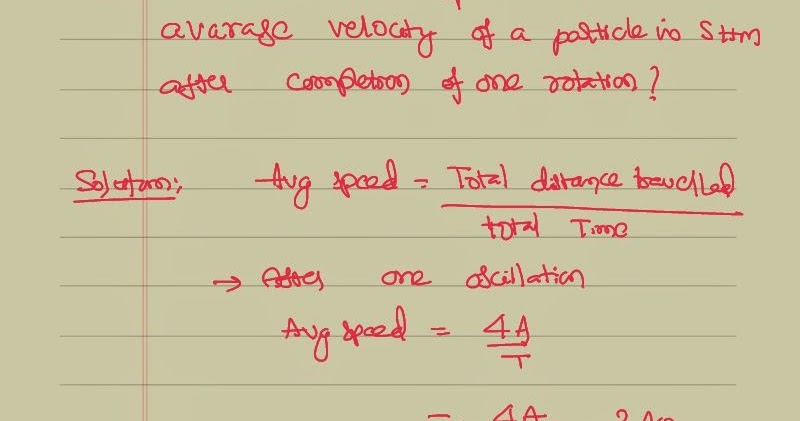 avarage velocity of a particle in SHM
after completion of one rotation?
Solution:
Avg speed = Total distance travelled
total Time
→ After one oscillation
Avg speed = 4A
T
= 4A